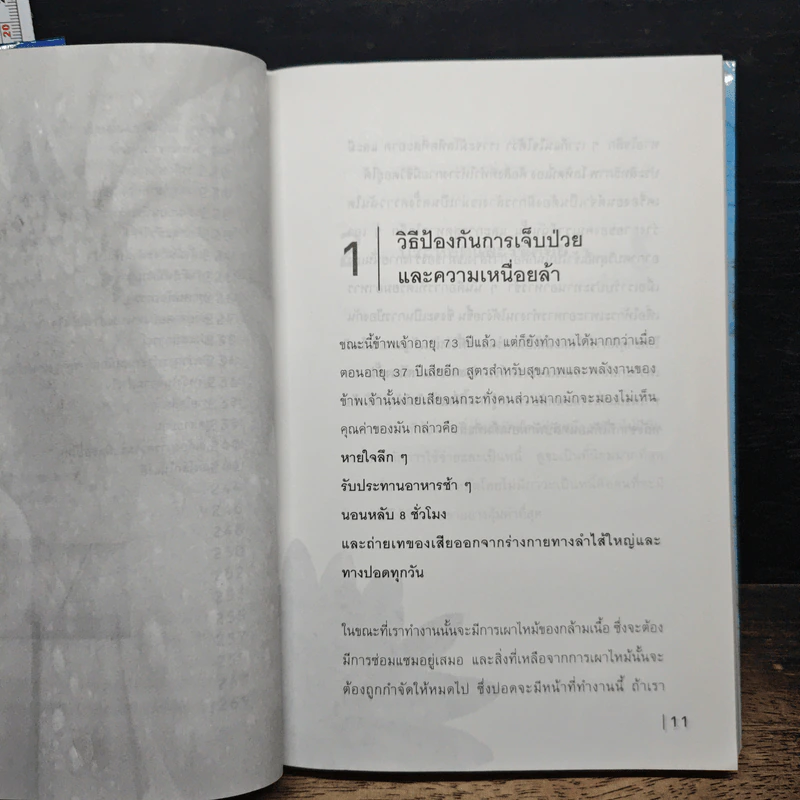 1
วิธีป้องกันการเจ็บป่วย
และความเหนื่อยล้า
ขณะนี้ข้าพเจ้าอายุ 73 ปีแล้ว แต่ก็ยังทำงานได้มากกว่าเมื่อ
ตอนอายุ 37 ปีเสียอีก สูตรสำหรับสุขภาพและพลังงานของ
ข้าพเจ้านั้นง่ายเสียจนกระทั่งคนส่วนมากมักจะมองไม่เห็น
คุณค่าของมัน กล่าวคือ
หายใจลึก ๆ
รับประทานอาหารช้า ๆ
นอนหลับ 8 ชั่วโมง
และถ่ายเทของเสียออกจากร่างกายทางลำไส้ใหญ่และ
ทางปอดทุกวัน
ในขณะที่เราทำงานนั้นจะมีการเผาไหม้ของกล้ามเนื้อ ซึ่งจะต้อง
มีการซ่อมแซมอยู่เสมอ และสิ่งที่เหลือจากการเผาไหม้นั้นจะ
ต้องถูกกำจัดให้หมดไป ซึ่งปอดจะมีหน้าที่ทำงานนี้ ถ้าเรา
|11
20